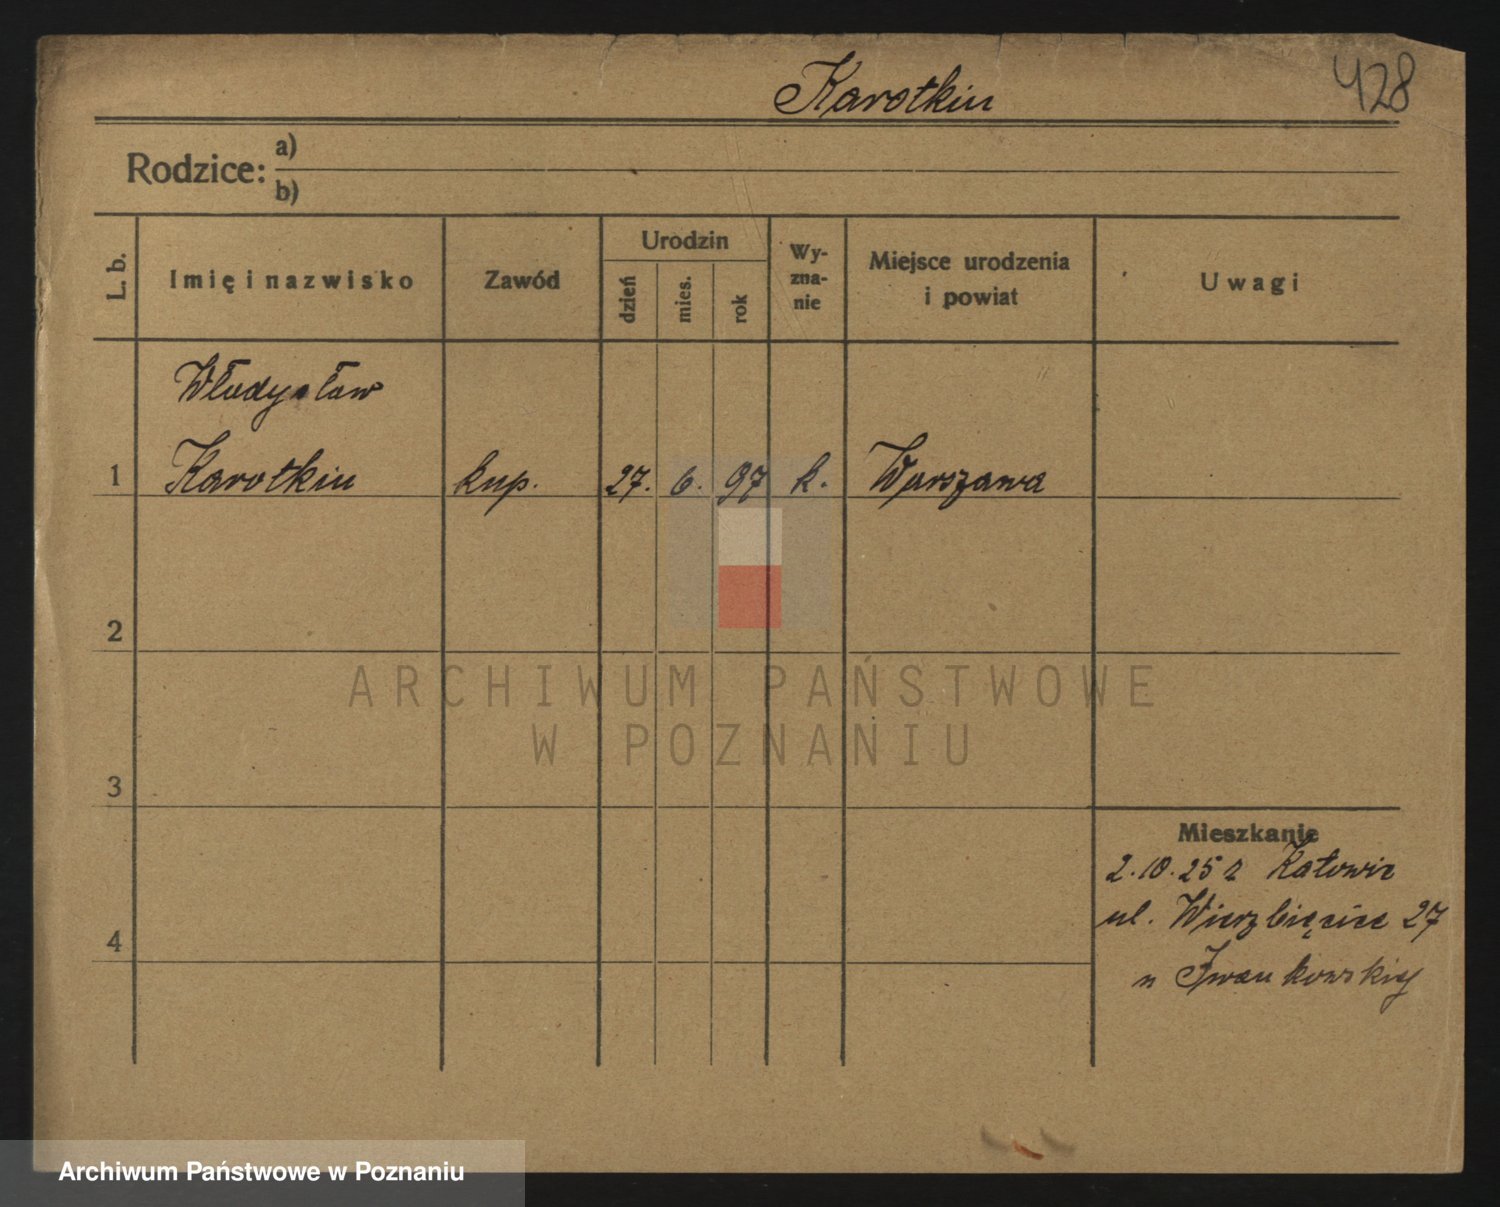 Karotkin
428
Rodzice: a)
b)
L. b.
Imię i nazwisko
Zawód
Urodzin
dzień
mies.
rok
Wy-
zna-
nie
Miejsce urodzenia
i powiat
Uwagi
Władysław
1 Karotkin kup. 27. 6. 97 k. Warszawa
2
3
4
Mieszkanie
2.10.25 z Katowic
ul. Wierzbięcice 27
u Iwankowskiej
ARCHIWUM PAŃSTWOWE
W POZNANIU
Archiwum Państwowe w Poznaniu